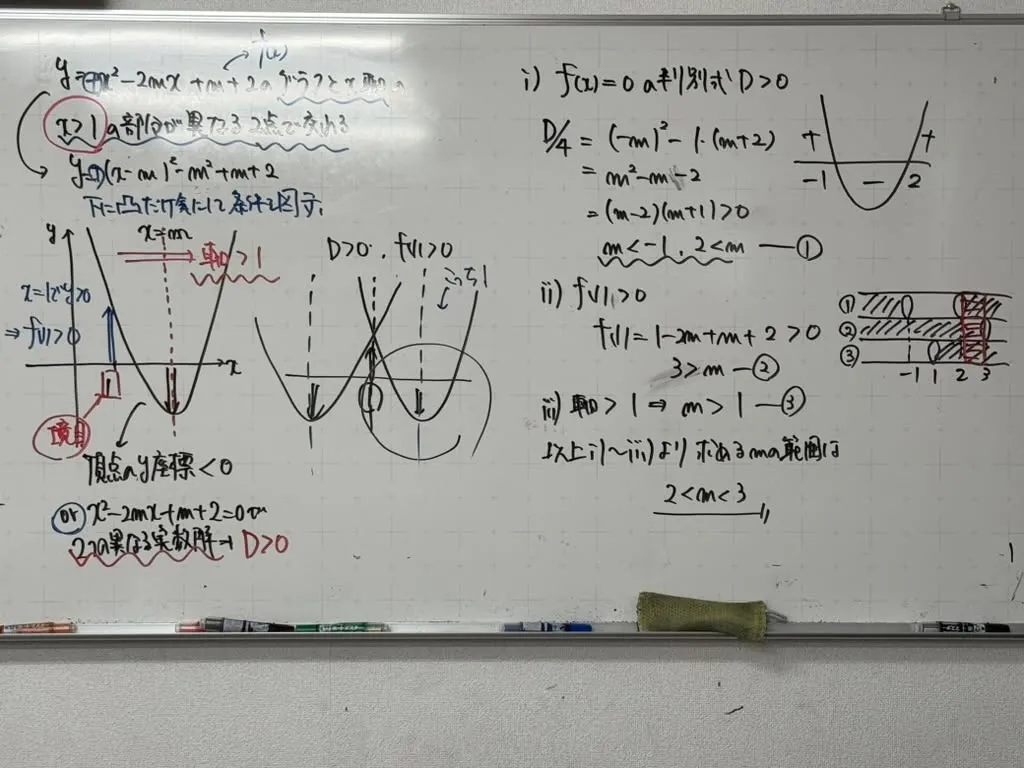 f(x)
y=⊕x²-2mx+m+2のグラフとx軸の
x>1の部分が異なる2点で交わる
y=①(x-m)²-m²+m+2
下に凸だけ気にして条件を図示
y
x=m
軸>1
x=1でy>0
⇒ f(1)>0
x
境目
頂点のy座標<0
or x²-2mx+m+2=0が
2つの異なる実数解→D>0
D>0, f(1)>0
こっち!
i) f(x)=0の判別式D>0
D/4 = (-m)²-1·(m+2)
= m²-m-2
=(m-2)(m+1)>0
m<-1, 2<m —①
+ +
-1 - 2
ii) f(1)>0
f(1)=1-2m+m+2>0
3>m —②
①
②
③
-1 1 2 3
iii) 軸>1 ⇒ m>1 —③
以上i)~iii)より求めるmの範囲は
2<m<3